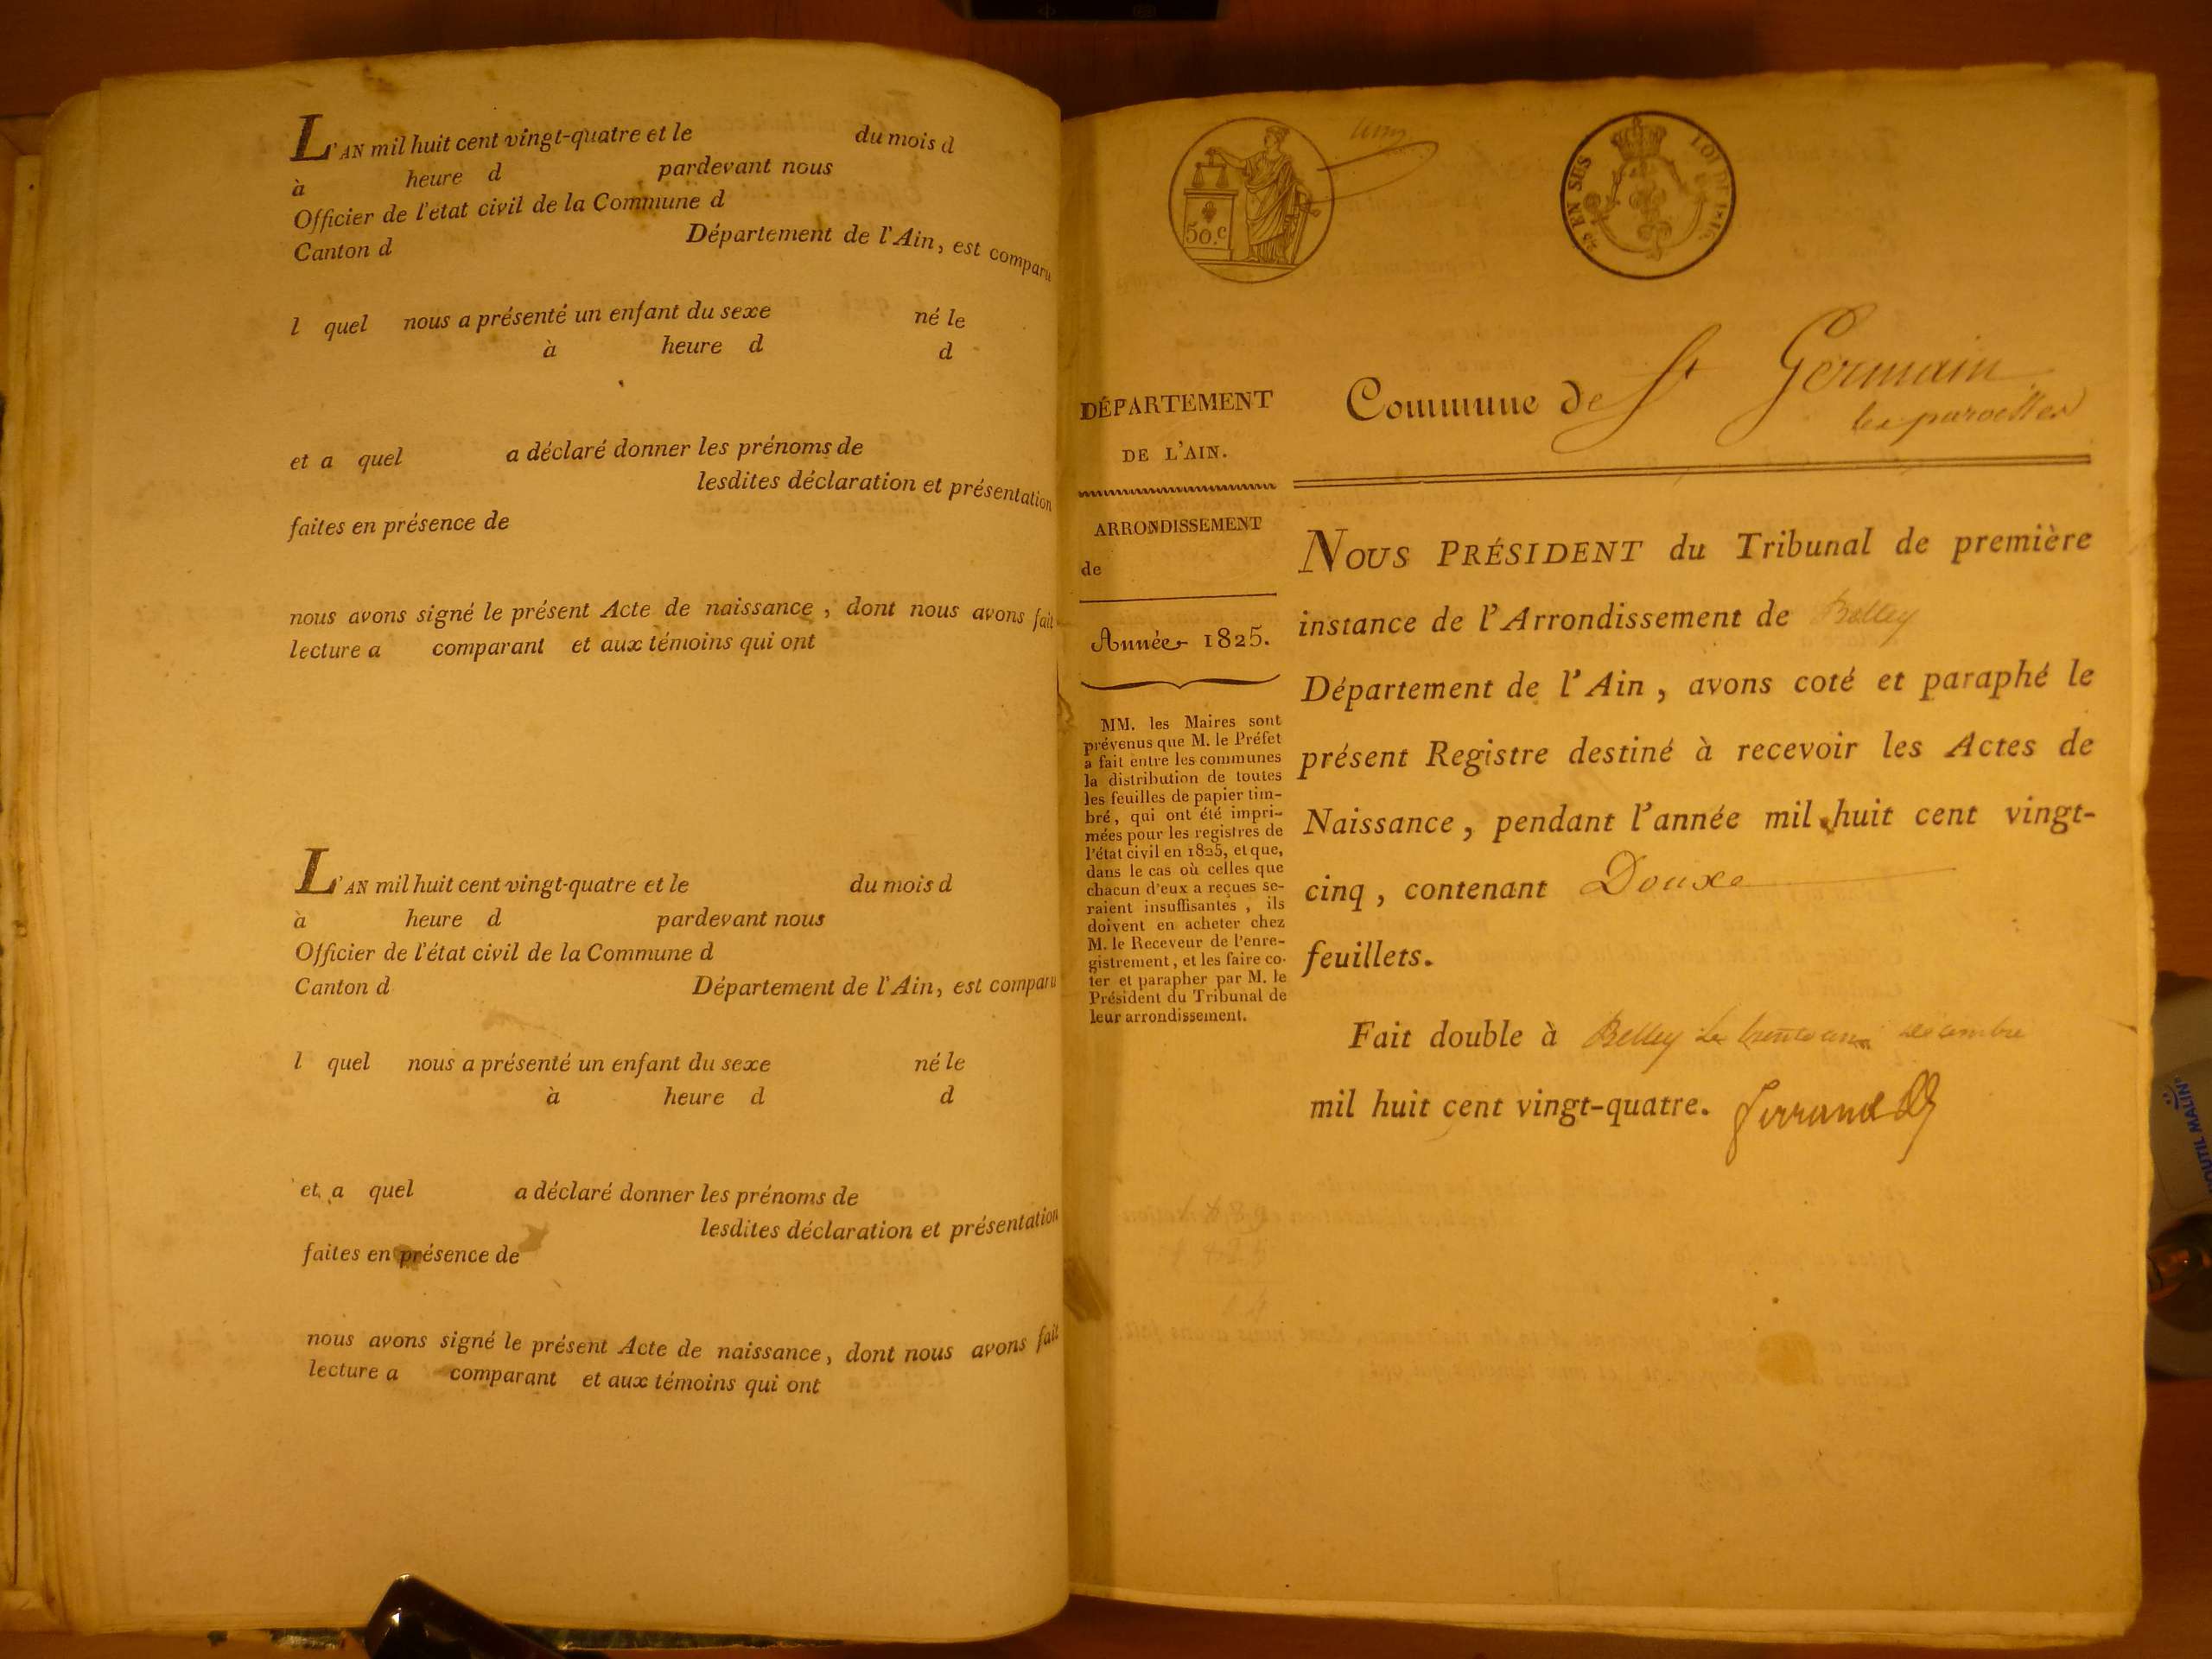 L'AN mil huit cent vingt-quatre et le du mois d
à heure d pardevant nous
Officier de l'état civil de la Commune d
Canton d Département de l'Ain, est comparu
l quel nous a présenté un enfant du sexe né le
à heure d d
et a quel a déclaré donner les prénoms de
lesdites déclaration et présentation
faites en présence de
nous avons signé le présent Acte de naissance, dont nous avons fait
lecture a comparant et aux témoins qui ont
L'AN mil huit cent vingt-quatre et le du mois d
à heure d pardevant nous
Officier de l'état civil de la Commune d
Canton d Département de l'Ain, est comparu
l quel nous a présenté un enfant du sexe né le
à heure d d
et a quel a déclaré donner les prénoms de
lesdites déclaration et présentation
faites en présence de
nous avons signé le présent Acte de naissance, dont nous avons fait
lecture a comparant et aux témoins qui ont
50.c
EN SES LOI DE
DÉPARTEMENT
DE L'AIN.
ARRONDISSEMENT
de
Année 1825.
MM. les Maires sont
prévenus que M. le Préfet
a fait entre les communes
la distribution de toutes
les feuilles de papier tim-
bré, qui ont été impri-
mées pour les registres de
l'état civil en 1825, et que,
dans le cas où celles que
chacun d'eux a reçues se-
raient insuffisantes, ils
doivent en acheter chez
M. le Receveur de l'enre-
gistrement, et les faire co-
ter et parapher par M. le
Président du Tribunal de
leur arrondissement.
Commune de St Germain
les paroisses
NOUS PRÉSIDENT du Tribunal de première
instance de l'Arrondissement de Belley
Département de l'Ain, avons coté et paraphé le
présent Registre destiné à recevoir les Actes de
Naissance, pendant l'année mil huit cent vingt-
cinq, contenant Douze
feuillets.
Fait double à Belley le trente un decembre
mil huit cent vingt-quatre.
OUTIL MALIN